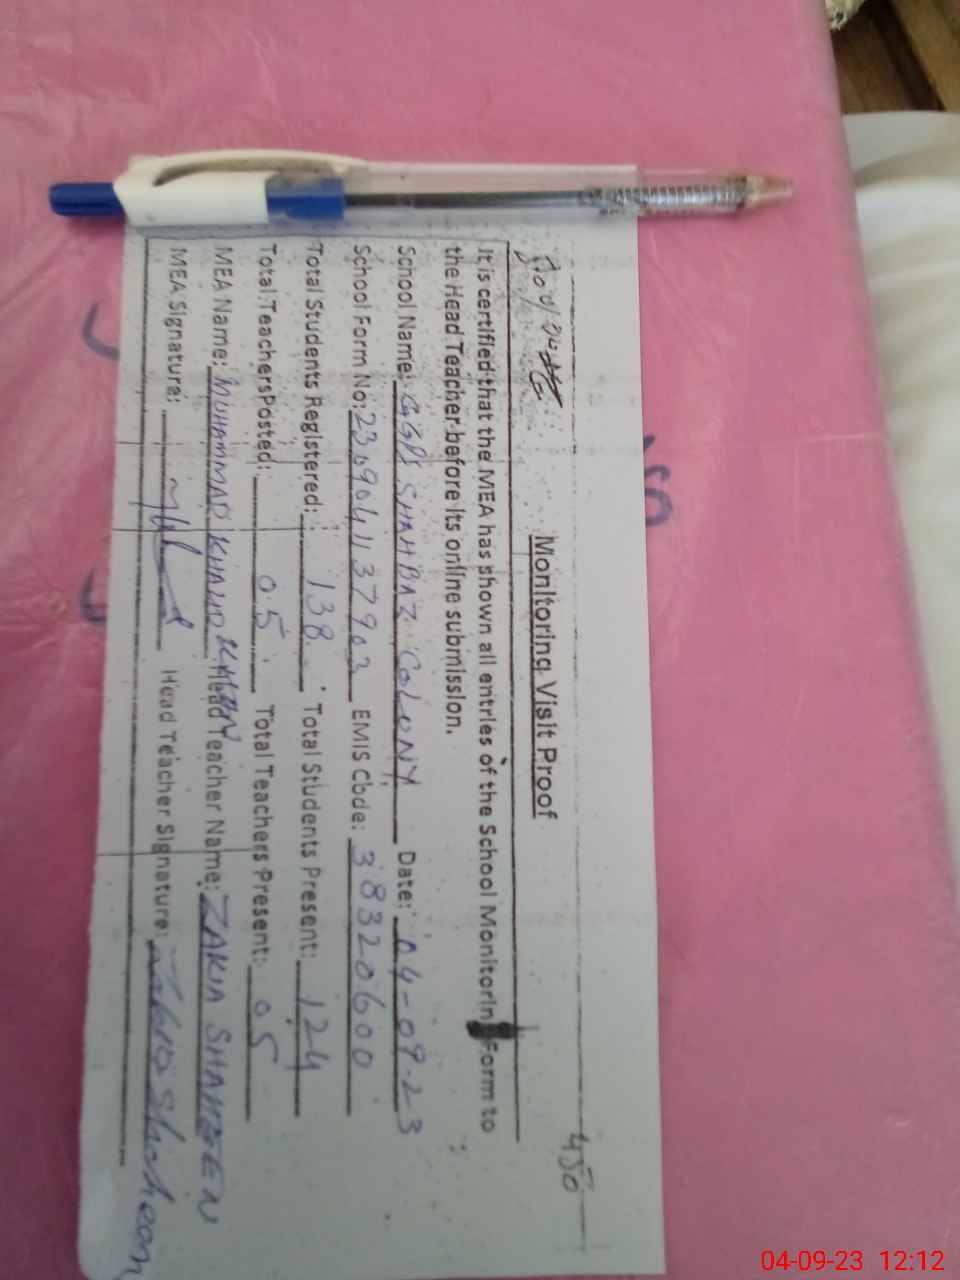 450
Monitoring Visit Proof
It is certified that the MEA has shown all entries of the School Monitorin Form to
the Head Teacher before its online submission.
School Name: GGPS SHAHBAZ COLONY Date: 04-09-23
School Form No: EMIS Code: 38320600
Total Students Registered: 138 Total Students Present: 124
Total Teachers Posted: 05 Total Teachers Present: 05
MEA Name: MUHAMMAD KHALID KHAN Head Teacher Name: ZAKIA SHAHEEN
MEA Signature: Head Teacher Signature: Zakia Shaheen
04-09-23 12:12